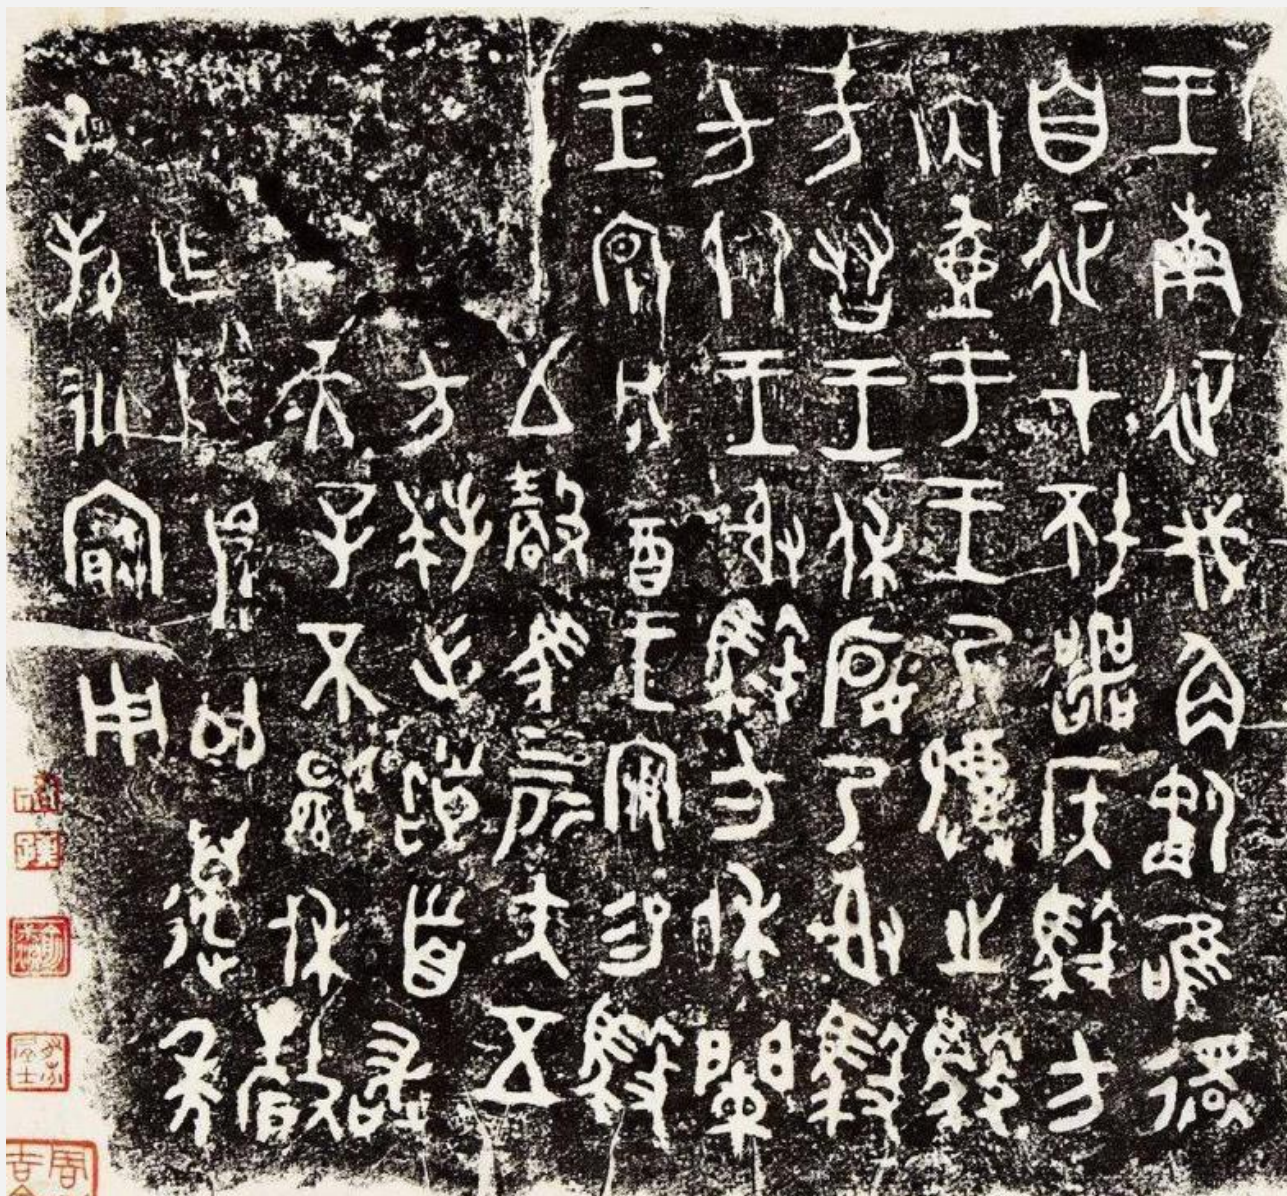 王南征伐角僪唯還
自征才坯噩侯馭方
内壺于王乃祼之馭
方侑王休宴乃射馭
方佮王射馭方休闌
王揚咸飲王親易馭
五瑴馬四匹矢五
方拜手䭫首敢
天子不顯休釐
乍尊鼎其邁年
子孫永寶用